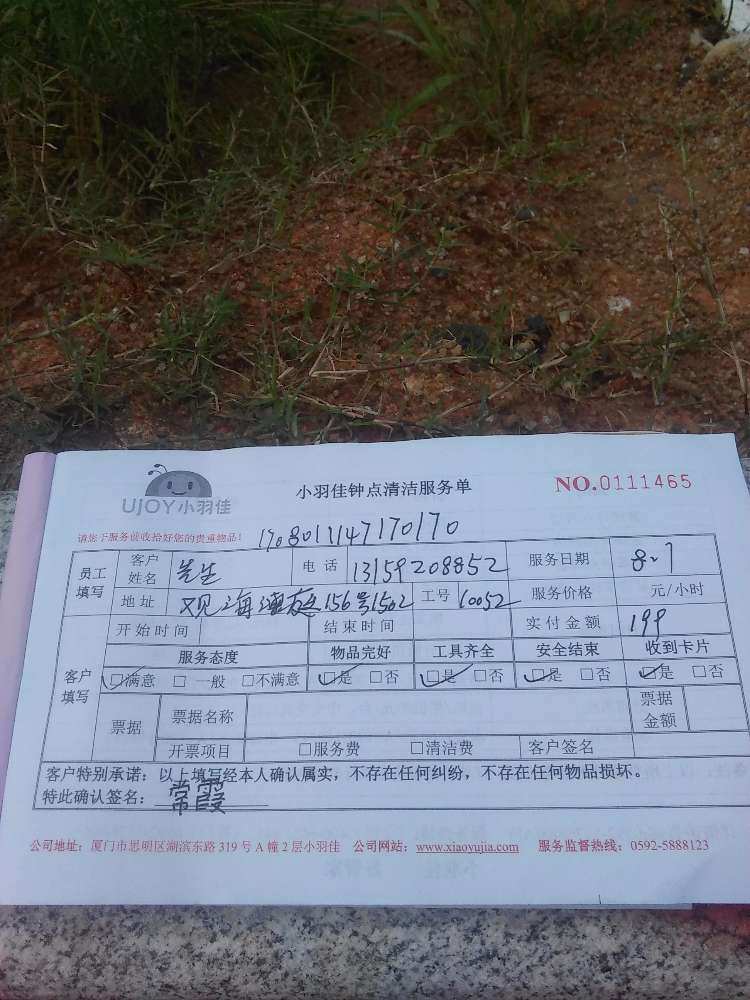 UJOY小羽佳 小羽佳钟点清洁服务单 NO.0111465
请您于服务前收拾好您的贵重物品! 1708011147170170
员工填写 客户姓名 先生 电话 13159208852 服务日期 8.7
地址 观海 156号1502 工号 10052 服务价格 元/小时
开始时间 结束时间 实付金额 199
客户填写 服务态度 物品完好 工具齐全 安全结束 收到卡片
☑满意 □一般 □不满意 ☑是 □否 ☑是 □否 ☑是 □否 ☑是 □否
票据 票据名称 票据金额
开票项目 □服务费 □清洁费 客户签名
客户特别承诺:以上填写经本人确认属实,不存在任何纠纷,不存在任何物品损坏。
特此确认签名: 常霞
公司地址:厦门市思明区湖滨东路319号A幢2层小羽佳 公司网站:www.xiaoyujia.com 服务监督热线:0592-5888123